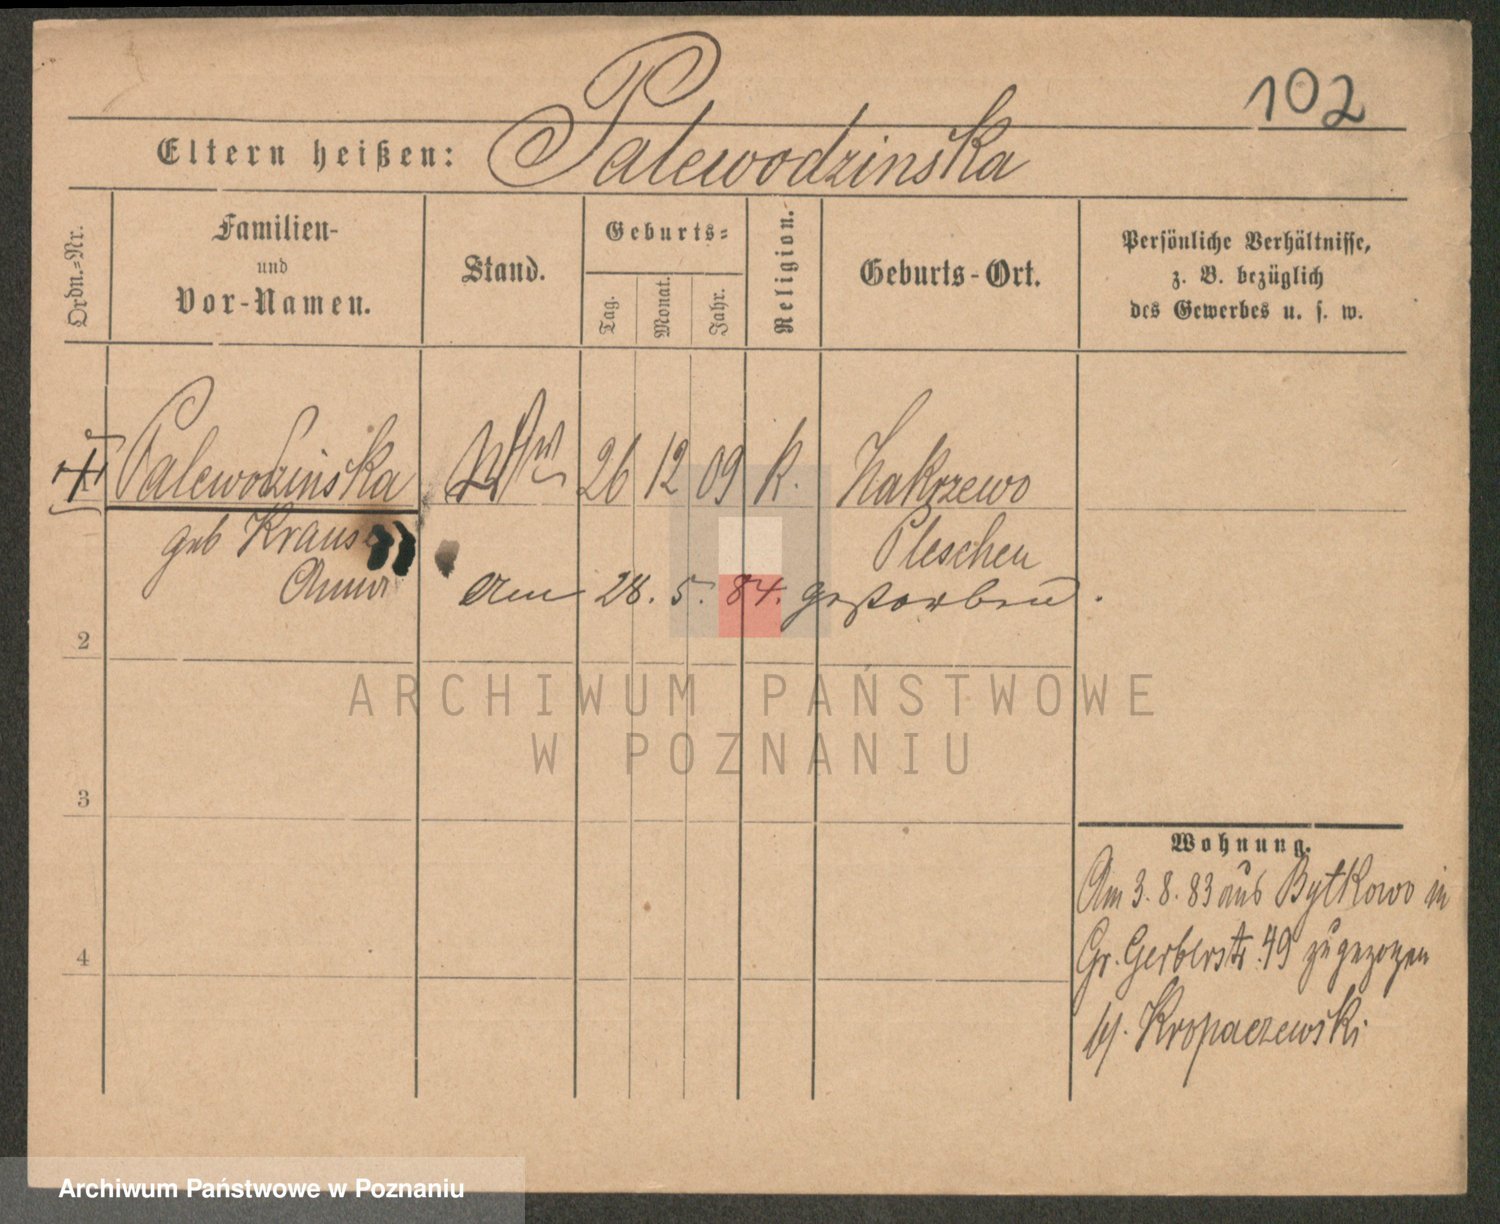 102
Eltern heißen: Palewodzinska
Ordn.-Nr.
Familien-
und
Vor-Namen.
Stand.
Geburts-
Tag.
Monat.
Jahr.
Religion.
Geburts-Ort.
Persönliche Verhältnisse,
z. B. bezüglich
des Gewerbes u. s. w.
Palewodzinska 26 12 09 K. Zakrzewo
geb Krause Pleschen
Anna Am 28. 5. 84. gestorben.
2
3
4
Wohnung.
Am 3. 8. 83 aus Bytkowo in
Gr. Gerberstr. 49 zugezogen
bj. Kropaczewski
ARCHIWUM PAŃSTWOWE
W POZNANIU
Archiwum Państwowe w Poznaniu